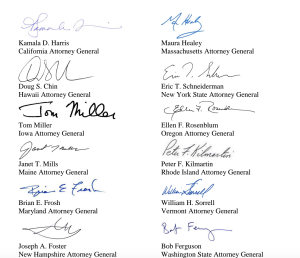 Kamala D. Harris
California Attorney General
Doug S. Chin
Hawaii Attorney General
Tom Miller
Tom Miller
Iowa Attorney General
Janet T. Mills
Janet T. Mills
Maine Attorney General
Brian E. Frosh
Brian E. Frosh
Maryland Attorney General
Joseph A. Foster
New Hampshire Attorney General
Maura Healey
Massachusetts Attorney General
Eric T. Schneiderman
New York State Attorney General
Ellen F. Rosenblum
Ellen F. Rosenblum
Oregon Attorney General
Peter F. Kilmartin
Peter F. Kilmartin
Rhode Island Attorney General
William Sorrell
William H. Sorrell
Vermont Attorney General
Bob Ferguson
Washington State Attorney General